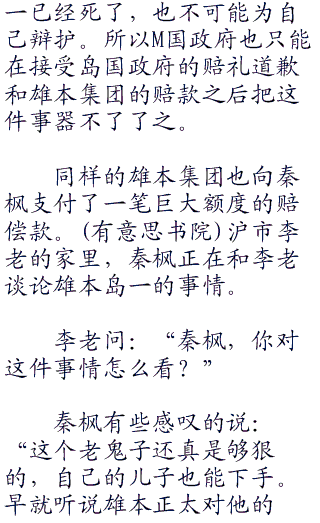 一已经死了，也不可能为自
己辩护。所以M国政府也只能
在接受岛国政府的赔礼道歉
和雄本集团的赔款之后把这
件事器不了了之。
同样的雄本集团也向秦
枫支付了一笔巨大额度的赔
偿款。(有意思书院)沪市李
老的家里，秦枫正在和李老
谈论雄本岛一的事情。
李老问：“秦枫，你对
这件事情怎么看？”
秦枫有些感叹的说：
“这个老鬼子还真是够狠
的，自己的儿子也能下手。
早就听说雄本正太对他的